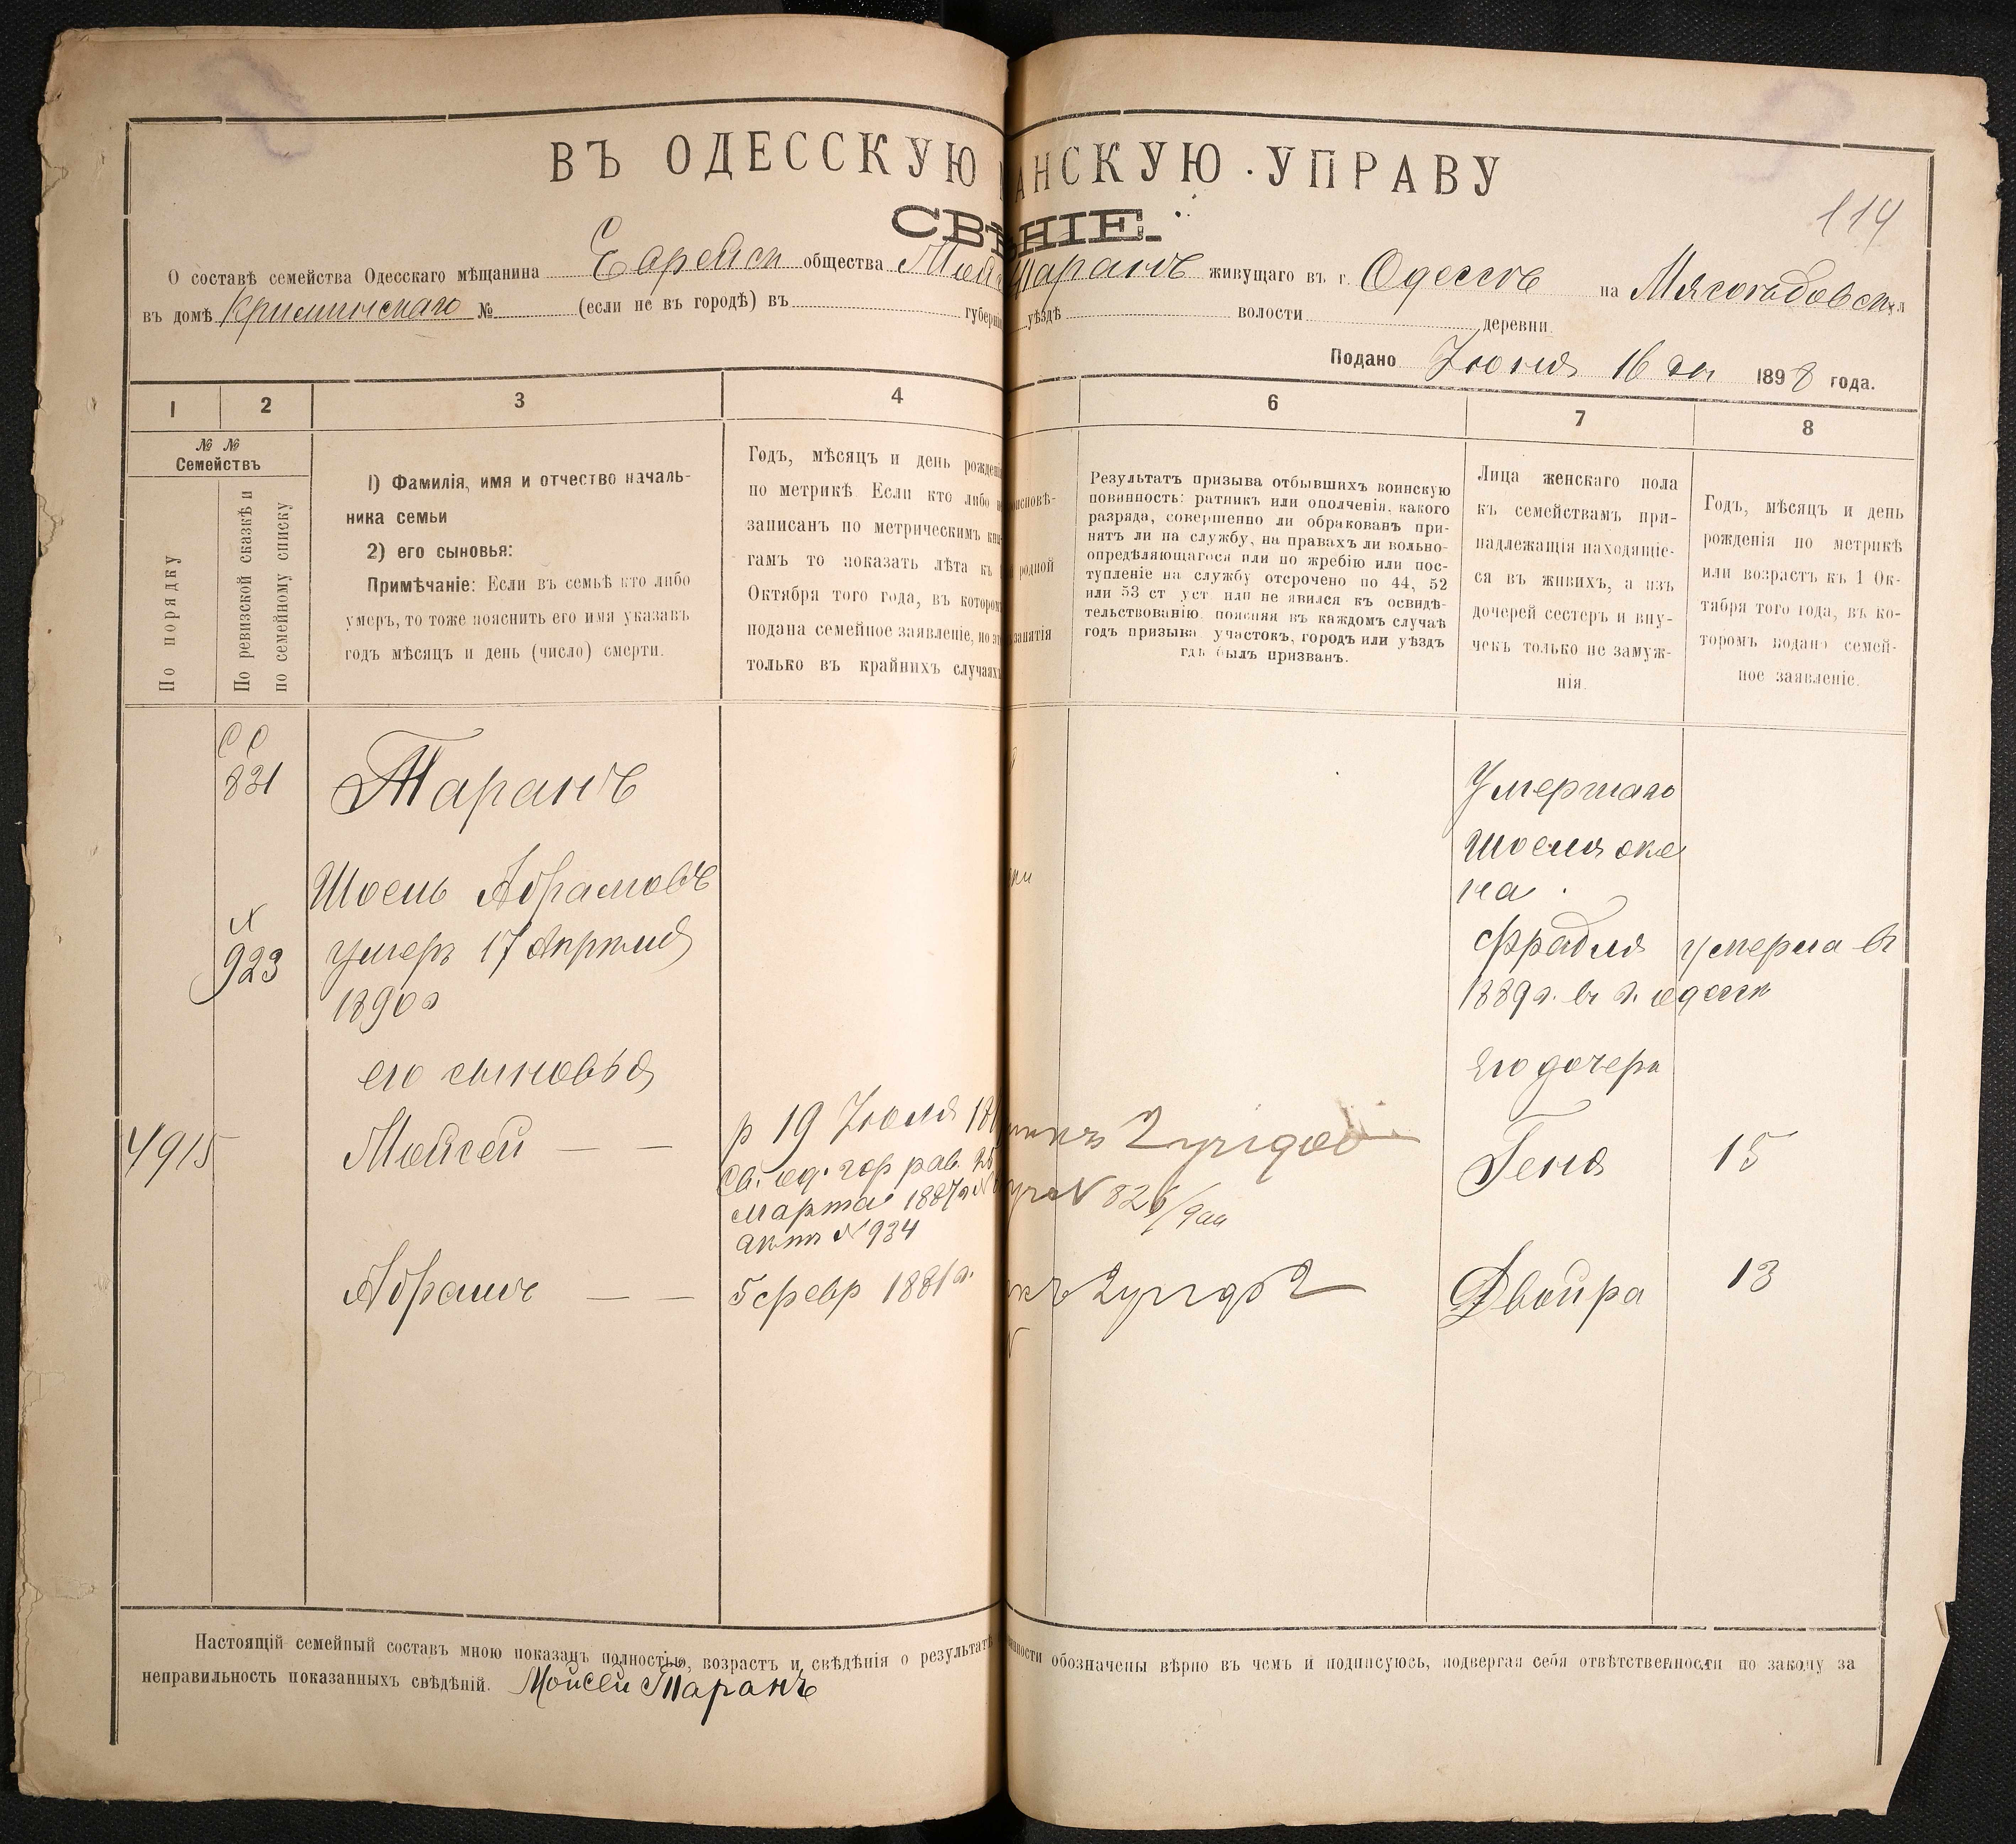 ВЪ ОДЕССКУЮ АНСКУЮ УПРАВУ
СВѢ НІЕ.
114
О составѣ семейства Одесскаго мѣщанина Еврейск общества Таранъ живущаго въ г. Одессѣ на Мясоѣдовск
въ домѣ № (если не въ городѣ) въ губерніи уѣздѣ волости деревни
Подано Іюня 16 дня 1898 года.
1 2 3 4 6 7 8
№ №
Семействъ
По порядку
По ревизской сказкѣ и
по семейному списку
1) Фамилія, имя и отчество началь-
ника семьи
2) его сыновья:
Примѣчаніе: Если въ семьѣ кто либо
умеръ, то тоже пояснить его имя указавъ
годъ мѣсяцъ и день (число) смерти.
Годъ, мѣсяцъ и день рожденія
по метрикѣ Если кто либо не
записанъ по метрическимъ кни-
гамъ то показать лѣта къ
Октября того года, въ которомъ
подана семейное заявленіе, но это
только въ крайнихъ случаяхъ
исповѣ-
родной
занятія
Результатъ призыва отбывшихъ воинскую
повинность: ратникъ или ополченія, какого
разряда, совершенно ли обракованъ при-
нятъ ли на службу, на правахъ ли вольно-
опредѣляющагося или по жребію или пос-
тупленіе на службу отсрочено по 44, 52
или 53 ст уст или не явился къ освидѣ-
тельствованію поясняя въ каждомъ случаѣ
годъ призыва участокъ, городъ или уѣздъ
гдѣ былъ призванъ.
Лица женскаго пола
къ семействамъ при-
надлежащія находящіе-
ся въ живихъ, а изъ
дочерей сестеръ и вну-
чекъ только не замуж-
нія.
Годъ, мѣсяцъ и день
рожденія по метрикѣ
или возрастъ къ 1 Ок-
тября того года, въ ко-
торомъ подано семей-
ное заявленіе.
831
Таранъ
Умершаго
Шоеля же
на
Шоель Абрамовъ
N
923
умеръ 17 Апрѣля
1890 г
Фрадля умерла въ
1889 г. въ г. Одессѣ
его сыновья
Его дочери
4915
Мойсей — —
р 19 Іюля
Св. од. гор рав. 25
марта 1887 г
актъ N 934
N 826
Геня 15
Абрамъ — —
5 февр 1881 г.
Двойра 13
Настоящій семейный составъ мною показанъ полностью, возрастъ и свѣдѣнія о результатѣ нности обозначены вѣрно въ чемъ и подписуюсь, подвергая себя отвѣтственности по закону за
неправильность показанныхъ свѣдѣній. Мойсей Таранъ